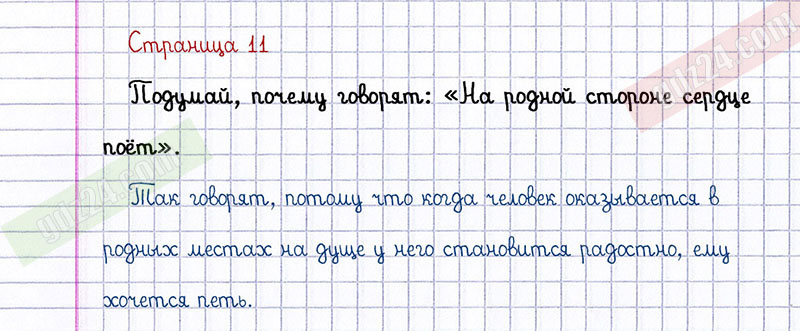 Страница 11
Подумай, почему говорят: «На родной стороне сердце
поёт».
Так говорят, потому что когда человек оказывается в
родных местах на душе у него становится радостно, ему
хочется петь.
gdz24.com
gdz24.com